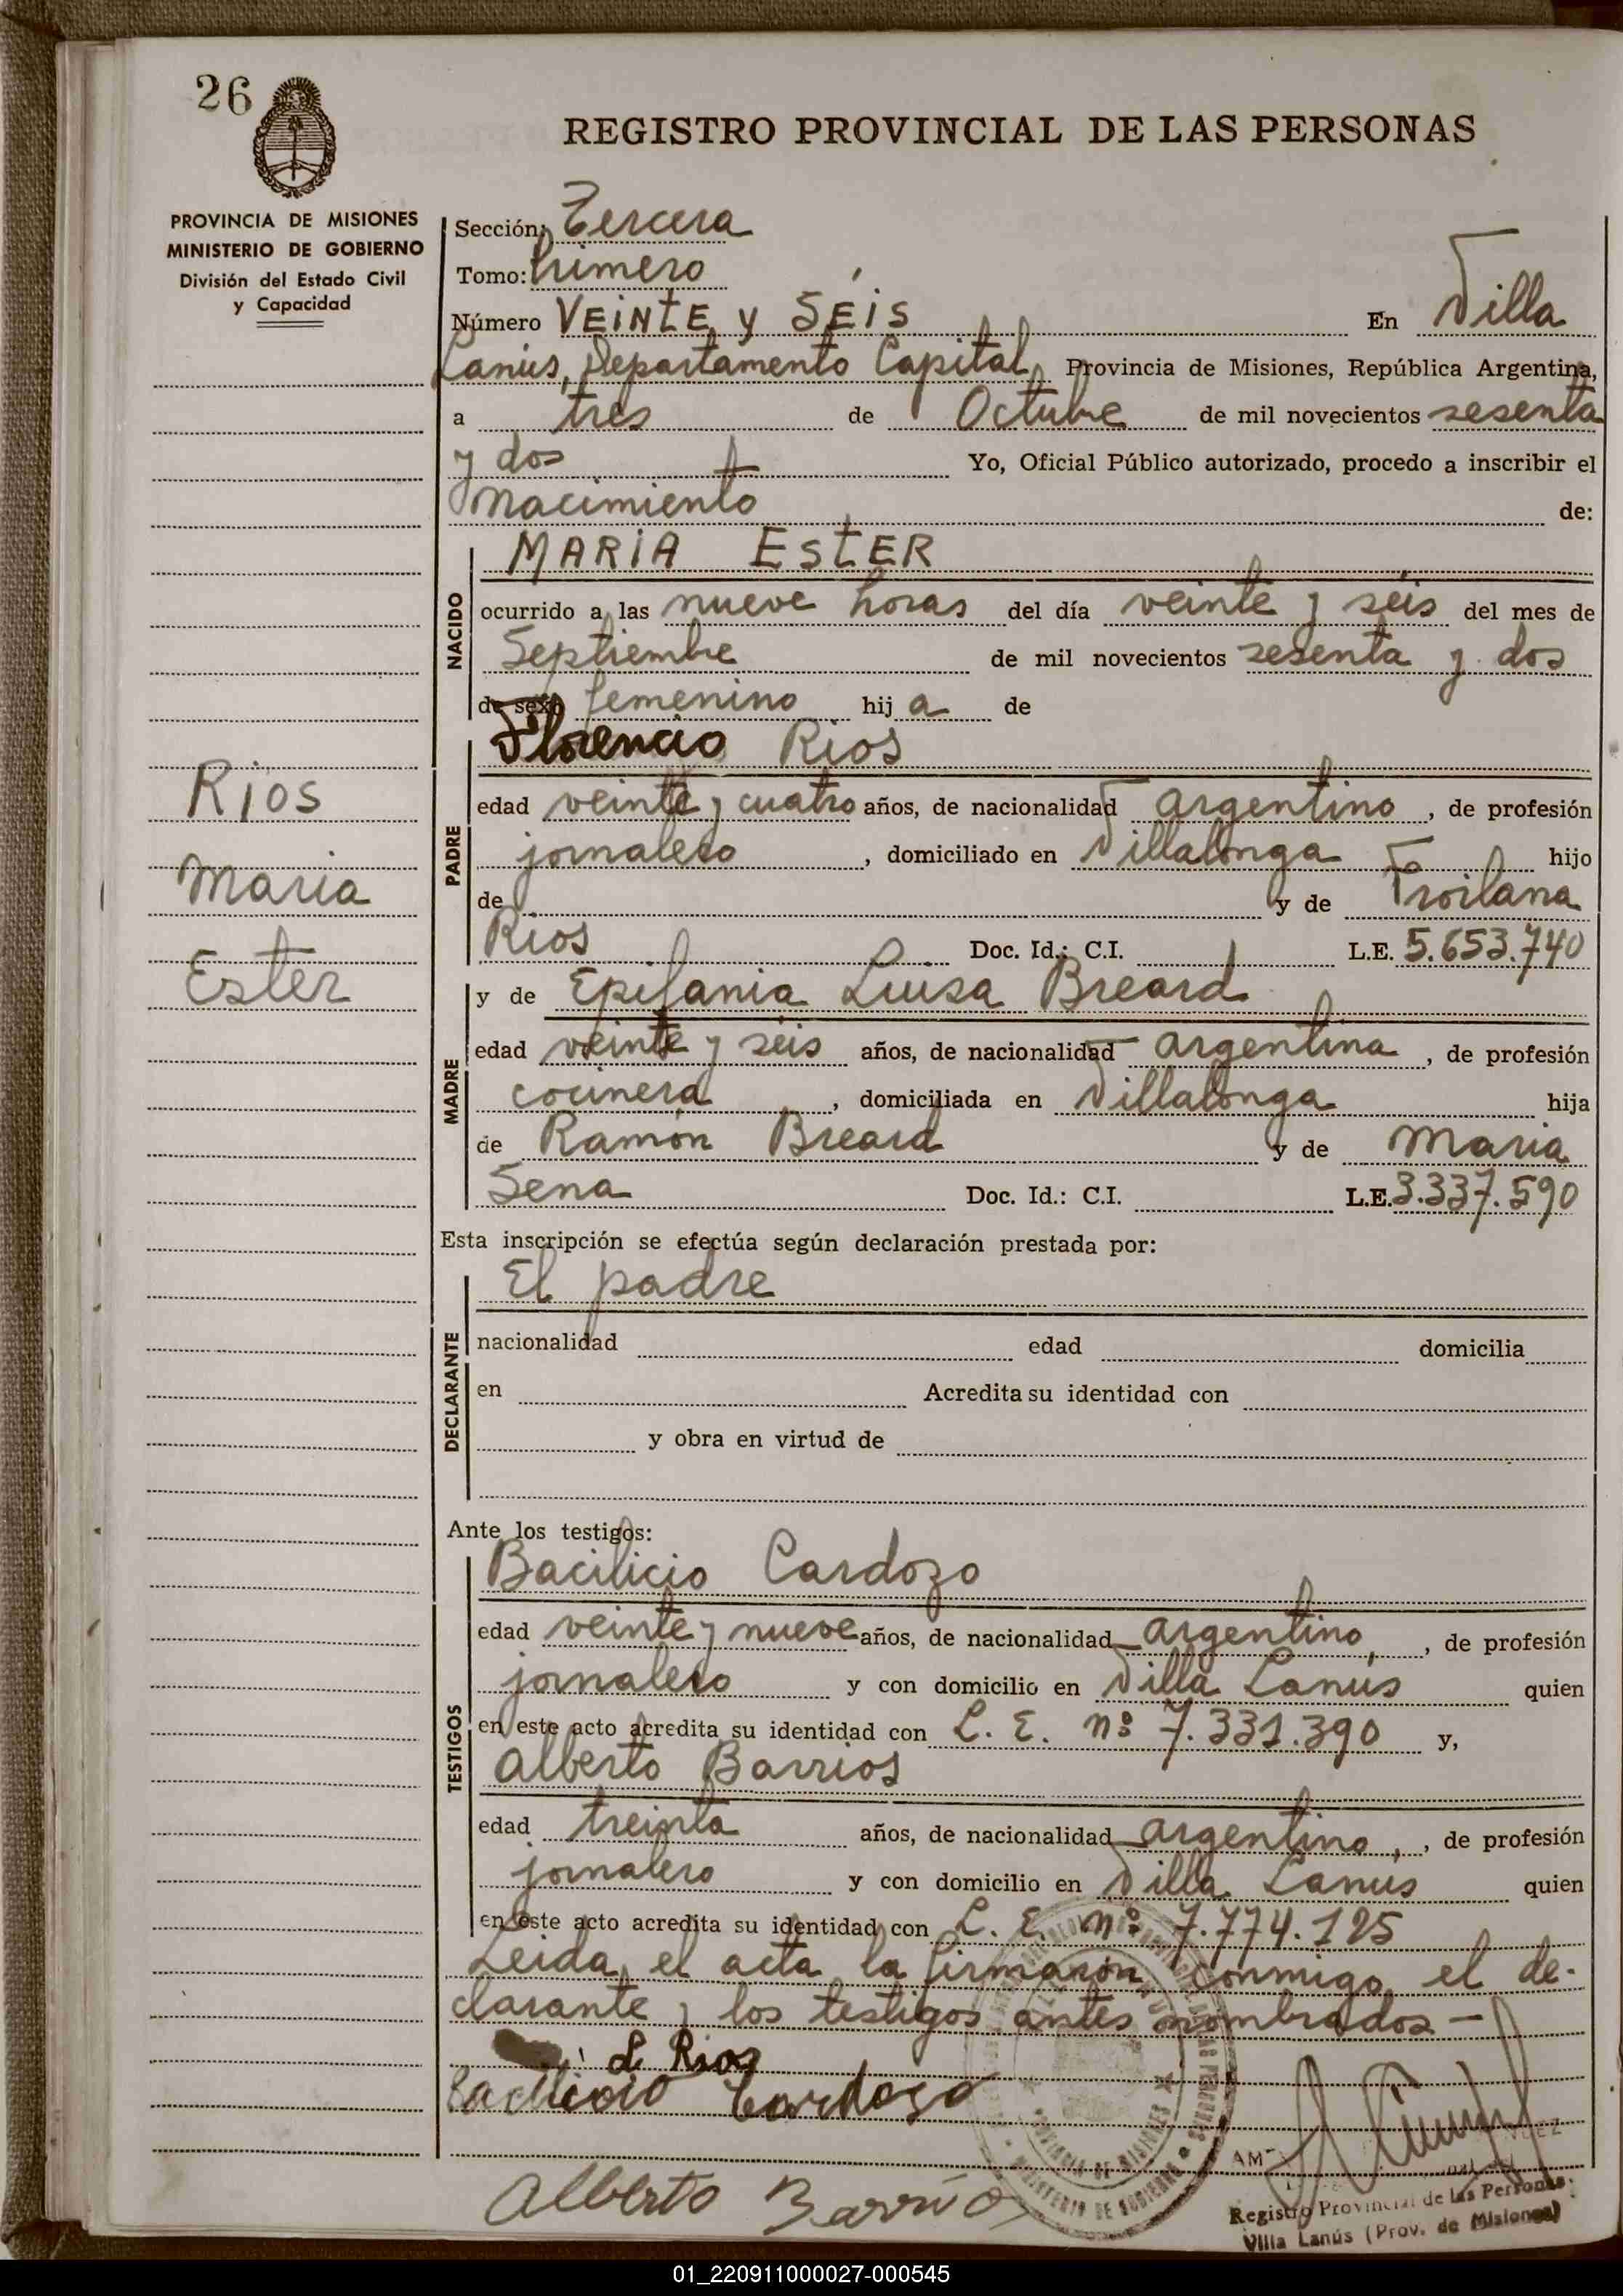 26
REGISTRO PROVINCIAL DE LAS PERSONAS
PROVINCIA DE MISIONES
MINISTERIO DE GOBIERNO
División del Estado Civil
y Capacidad
Sección: Tercera
Tomo: Primero
Número VEINTE y SÉIS En Villa
Lanús, Departamento Capital, Provincia de Misiones, República Argentina,
a tres de Octubre de mil novecientos sesenta
y dos Yo, Oficial Público autorizado, procedo a inscribir el
Nacimiento de:
MARIA ESTER
NACIDO
ocurrido a las nueve horas del día veinte y séis del mes de
Septiembre de mil novecientos sesenta y dos
de sexo femenino hij a de
Florencio Rios
Rios
Maria
Ester
PADRE
edad veinte y cuatro años, de nacionalidad argentino, de profesión
jornalero, domiciliado en Villalonga hijo
de y de Troilana
Rios Doc. Id.: C.I. L.E. 5.653.740
MADRE
y de Epifania Luisa Breard
edad veinte y séis años, de nacionalidad argentina, de profesión
cocinera, domiciliada en Villalonga hija
de Ramón Breard y de Maria
Sena Doc. Id.: C.I. L.E. 3.337.590
Esta inscripción se efectúa según declaración prestada por:
El padre
DECLARANTE
nacionalidad edad domicilia
en Acredita su identidad con
y obra en virtud de
Ante los testigos:
Bacilicio Cardozo
TESTIGOS
edad veinte y nueve años, de nacionalidad argentino, , de profesión
jornalero y con domicilio en Villa Lanús quien
en este acto acredita su identidad con L. E. nº 7.331.390 y,
Alberto Barrios
edad treinta años, de nacionalidad argentino, , de profesión
jornalero y con domicilio en Villa Lanús quien
en este acto acredita su identidad con L. E. nº 7.774.125
Leida el acta la firmarón conmigo el de-
clarante y los testigos antes nombrados —
Rios
Bacilicio Cardozo
Alberto Barrios
PROVINCIA DE MISIONES
MINISTERIO DE GOBIERNO
Registro Provincial de las Personas
Villa Lanús (Prov. de Misiones)
01_220911000027-000545